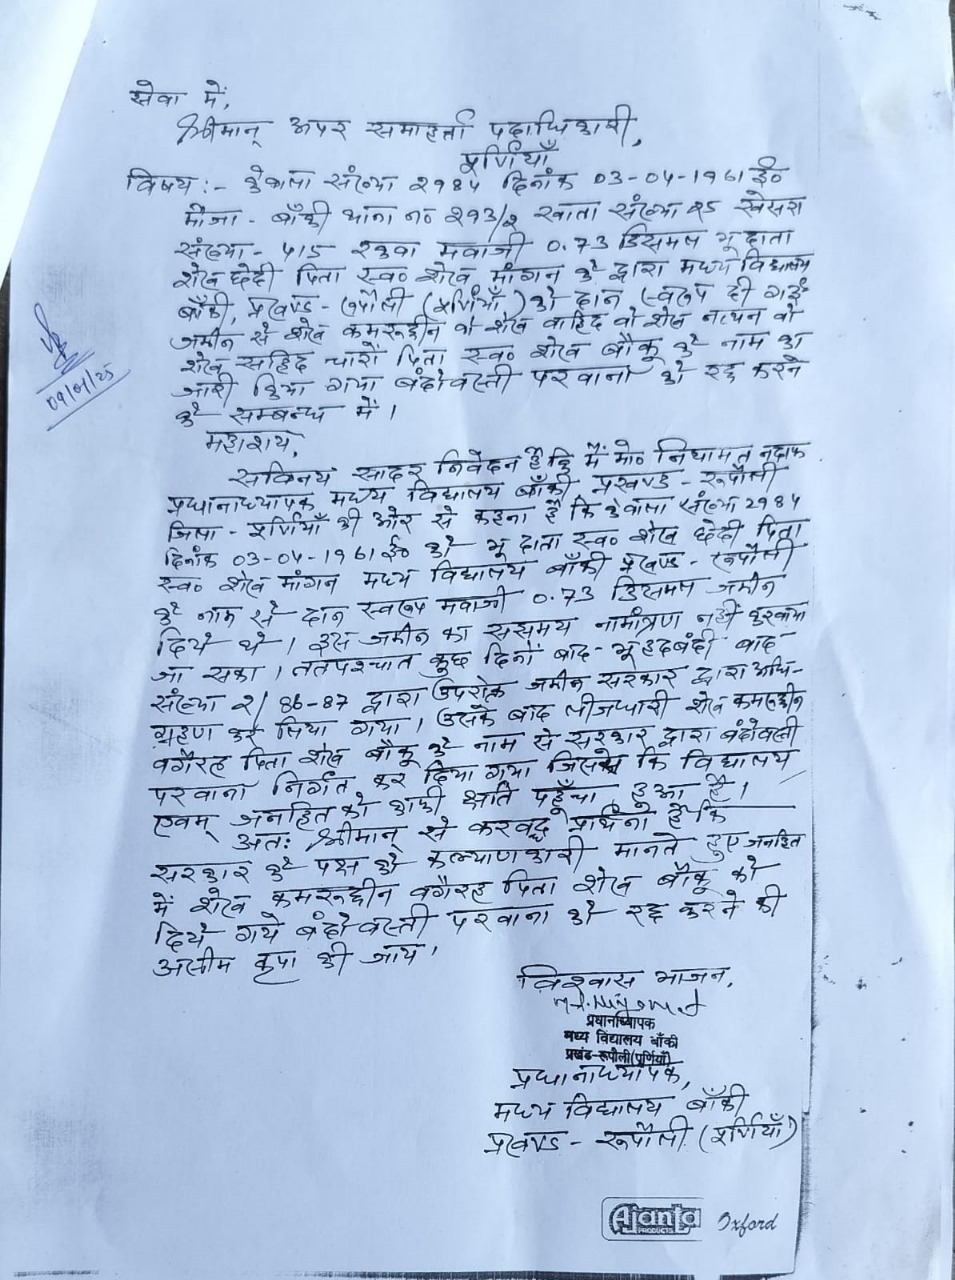 सेवा में,
श्रीमान् अपर समाहर्ता पदाधिकारी,
पूर्णियाँ
विषय :- केवाला संख्या 2984 दिनांक 03-04-1961 ई०
मौजा - बाँकी थाना न० 293/2 खाता संख्या 25 खेसरा
संख्या - 415 रकवा मवाजी 0.73 डिसमल भू दाता
शेख छेदी पिता स्व० शेख मांगन के द्वारा मध्य विद्यालय
बाँकी, प्रखण्ड - रूपौली (पूर्णियाँ) को दान स्वरूप दी गई
जमीन से शेख कमरूद्दीन वो शेख वाहिद वो शेख नत्थन वो
शेख सहिद चारो पिता स्व० शेख बौकू के नाम का
जारी किया गया बंदोवस्ती परवाना को रद्द करने
के सम्बन्ध में।
महाशय,
सविनय सादर निवेदन है कि मैं मो० नियामत नदाफ
प्रधानाध्यापक मध्य विद्यालय बाँकी प्रखण्ड - रूपौली
जिला - पूर्णियाँ की ओर से कहना है कि केवाला संख्या 2984
दिनांक 03-04-1961 ई० को भू दाता स्व० शेख छेदी पिता
स्व० शेख मांगन मध्य विद्यालय बाँकी प्रखण्ड - रूपौली
के नाम से दान स्वरूप मवाजी 0.73 डिसमल जमीन
दिये थे। इस जमीन का ससमय नामांत्रण नहीं करवाया
जा सका। ततपश्चात कुछ दिनों बाद - भू हदबंदी वाद
संख्या 2/86-87 द्वारा उपरोक्त जमीन सरकार द्वारा अधि-
ग्रहण कर लिया गया। उसके बाद लीजधारी शेख कमरूद्दीन
वगैरह पिता शेख बौकू के नाम से सरकार द्वारा बंदोवस्ती
परवाना निर्गत कर दिया गया जिससे कि विद्यालय
एवम् जनहित को काफी क्षति पहुँचा हुआ है।
अतः श्रीमान् से करवद्ध प्रार्थना है कि
सरकार के पक्ष को कल्याणकारी मानते हुए जनहित
में शेख कमरूद्दीन वगैरह पिता शेख बौकू को
दिये गये बंदोवस्ती परवाना को रद्द करने की
असीम कृपा की जाय।
विश्वास भाजन,
प्रधानाध्यापक
मध्य विद्यालय बाँकी
प्रखंड-रूपौली (पूर्णियाँ)
प्रधानाध्यापक,
मध्य विद्यालय बाँकी
प्रखण्ड - रूपौली (पूर्णियाँ)
Ajanta Oxford
PRODUCTS